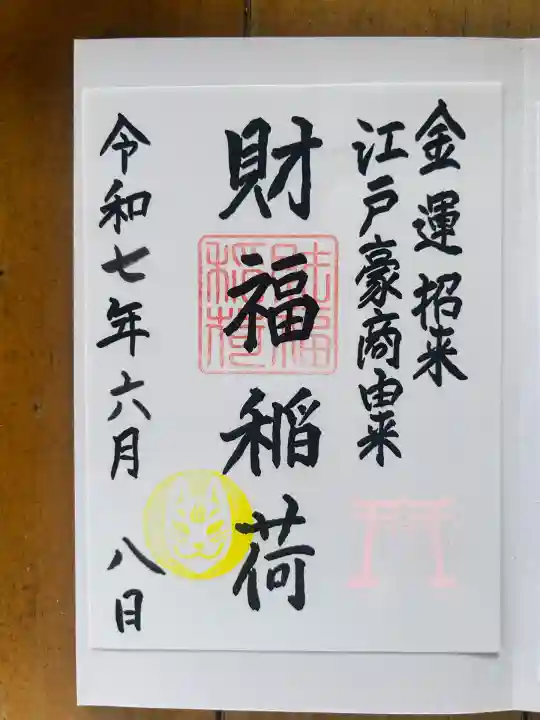 金運招来
江戸豪商由来
財福稲荷
財福
稲荷
令和七年六月八日